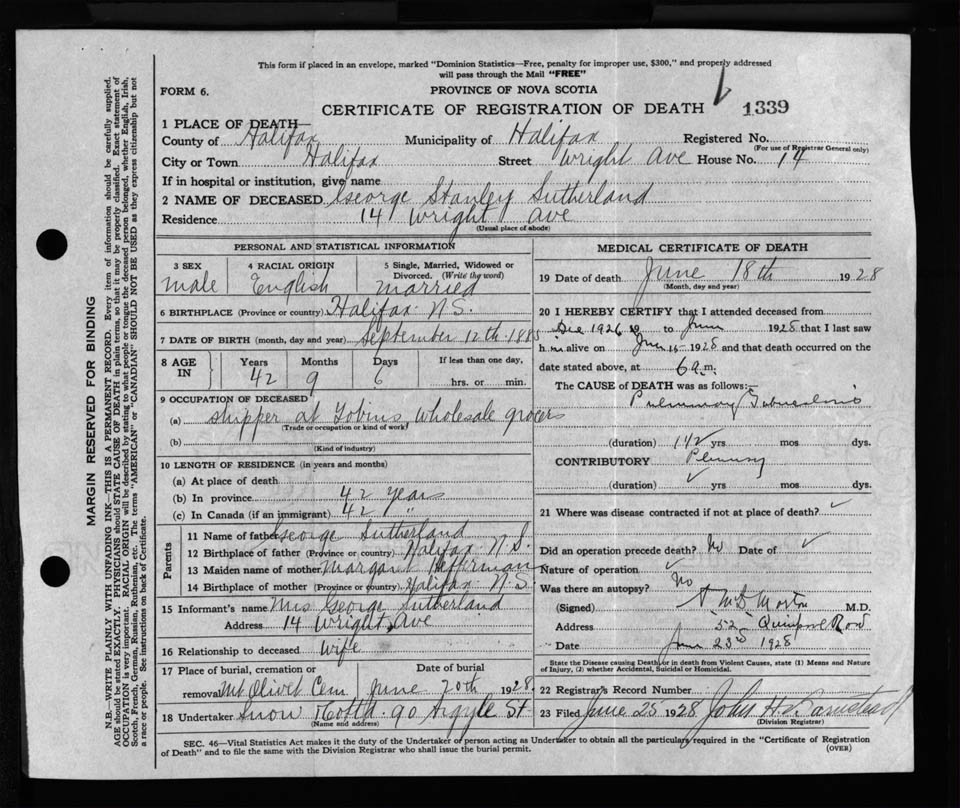 This form if placed in an envelope, marked "Dominion Statistics—Free, penalty for improper use, $300," and properly addressed
will pass through the Mail "FREE"
FORM 6.
PROVINCE OF NOVA SCOTIA
CERTIFICATE OF REGISTRATION OF DEATH 1339
1 PLACE OF DEATH—
County of Halifax Municipality of Halifax Registered No.
(For use of Registrar General only)
City or Town Halifax Street Wright Ave House No. 14
If in hospital or institution, give name
2 NAME OF DECEASED George Stanley Sutherland
Residence 14 Wright Ave
(Usual place of abode)
PERSONAL AND STATISTICAL INFORMATION
3 SEX 4 RACIAL ORIGIN 5 Single, Married, Widowed or
Divorced. (Write the word)
male English married
6 BIRTHPLACE (Province or country) Halifax N.S.
7 DATE OF BIRTH (month, day and year) September 12th 1885
8 AGE IN Years Months Days If less than one day,
42 9 6 hrs. or min.
9 OCCUPATION OF DECEASED
(a) Shipper at Tobins wholesale grocers
(Trade or occupation or kind of work)
(b)
(Kind of industry)
10 LENGTH OF RESIDENCE (in years and months)
(a) At place of death
(b) In province 42 years
(c) In Canada (if an immigrant) 42 "
Parents
11 Name of father George Sutherland
12 Birthplace of father (Province or country) Halifax N.S.
13 Maiden name of mother Margaret Hefferman
14 Birthplace of mother (Province or country) Halifax N.S.
15 Informant's name Mrs George Sutherland
Address 14 Wright Ave
16 Relationship to deceased wife
17 Place of burial, cremation or Date of burial
removal Mt Olivet Cem June 20th 1928
18 Undertaker Snow & Co Ltd. 90 Argyle St.
(Name and address)
MEDICAL CERTIFICATE OF DEATH
19 Date of death June 18th 1928
(Month, day and year)
20 I HEREBY CERTIFY that I attended deceased from
Dec 1926 19 to June 1928 that I last saw
h im alive on June 15 1928 and that death occurred on the
date stated above, at 6 a m.
The CAUSE of DEATH was as follows:—
Pulmonary Tuberculosis
(duration) 1 1/2 yrs mos dys.
CONTRIBUTORY Pleurisy
(duration) yrs mos dys.
21 Where was disease contracted if not at place of death?
Did an operation precede death? No Date of
Nature of operation
Was there an autopsy? No
(Signed) Morton M.D.
Address 52 Quinpool Road
Date June 23rd 1928
State the Disease causing Death, or in death from Violent Causes, state (1) Means and Nature
of Injury, (2) whether Accidental, Suicidal or Homicidal.
22 Registrar's Record Number
23 Filed June 25 1928 John H. Barnstead
(Division Registrar)
SEC. 46—Vital Statistics Act makes it the duty of the Undertaker or person acting as Undertaker to obtain all the particulars required in the "Certificate of Registration
of Death" and to file the same with the Division Registrar who shall issue the burial permit.
(OVER)
MARGIN RESERVED FOR BINDING
N.B.—WRITE PLAINLY WITH UNFADING INK—THIS IS A PERMANENT RECORD. Every item of information should be carefully supplied.
AGE should be stated EXACTLY. PHYSICIANS should STATE CAUSE OF DEATH in plain terms, so that it may be properly classified. Exact statement of
OCCUPATION is very important. RACIAL ORIGIN will be described by stating to what people or tongue the deceased person belonged, whether English, Irish,
Scotch, French, German, Russian, Ruthenian, etc. The terms "AMERICAN" or "CANADIAN" SHOULD NOT BE USED as they express citizenship but not
a race or people. See instructions on back of Certificate.